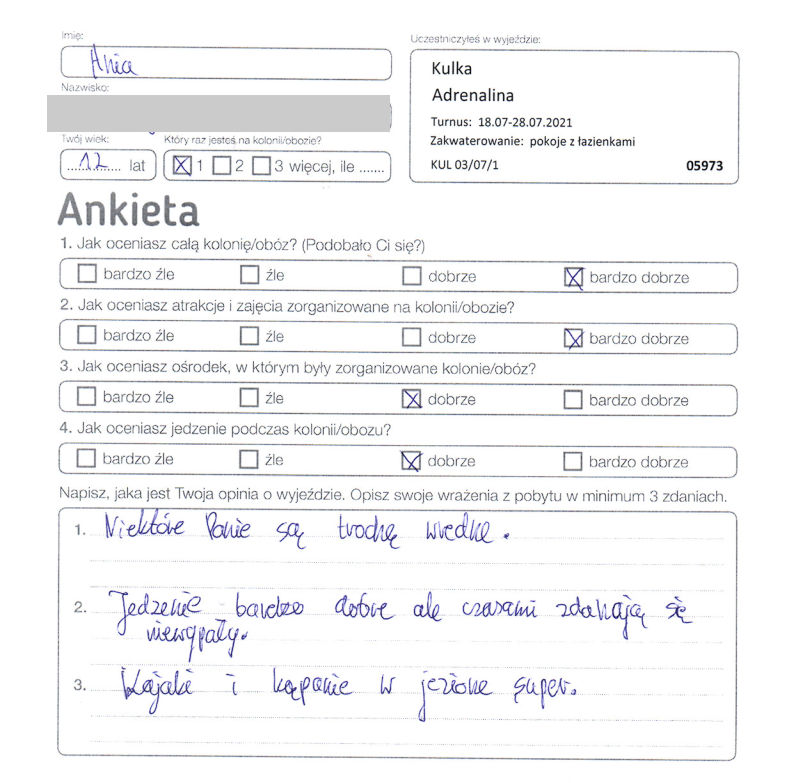 Imię:
Ania
Nazwisko:
Twój wiek:
12 lat
Który raz jesteś na kolonii/obozie?
1 2 3 więcej, ile .......
Uczestniczyłeś w wyjeździe:
Kulka
Adrenalina
Turnus: 18.07-28.07.2021
Zakwaterowanie: pokoje z łazienkami
KUL 03/07/1 05973
Ankieta
1. Jak oceniasz całą kolonię/obóz? (Podobało Ci się?)
bardzo źle źle dobrze bardzo dobrze
2. Jak oceniasz atrakcje i zajęcia zorganizowane na kolonii/obozie?
bardzo źle źle dobrze bardzo dobrze
3. Jak oceniasz ośrodek, w którym były zorganizowane kolonie/obóz?
bardzo źle źle dobrze bardzo dobrze
4. Jak oceniasz jedzenie podczas kolonii/obozu?
bardzo źle źle dobrze bardzo dobrze
Napisz, jaka jest Twoja opinia o wyjeździe. Opisz swoje wrażenia z pobytu w minimum 3 zdaniach.
1. Niektóre Panie są trochę wredne.
2. Jedzenie bardzo dobre ale czasami zdażają się
niewypały.
3. Kajaki i kąpanie w jeziorze super.